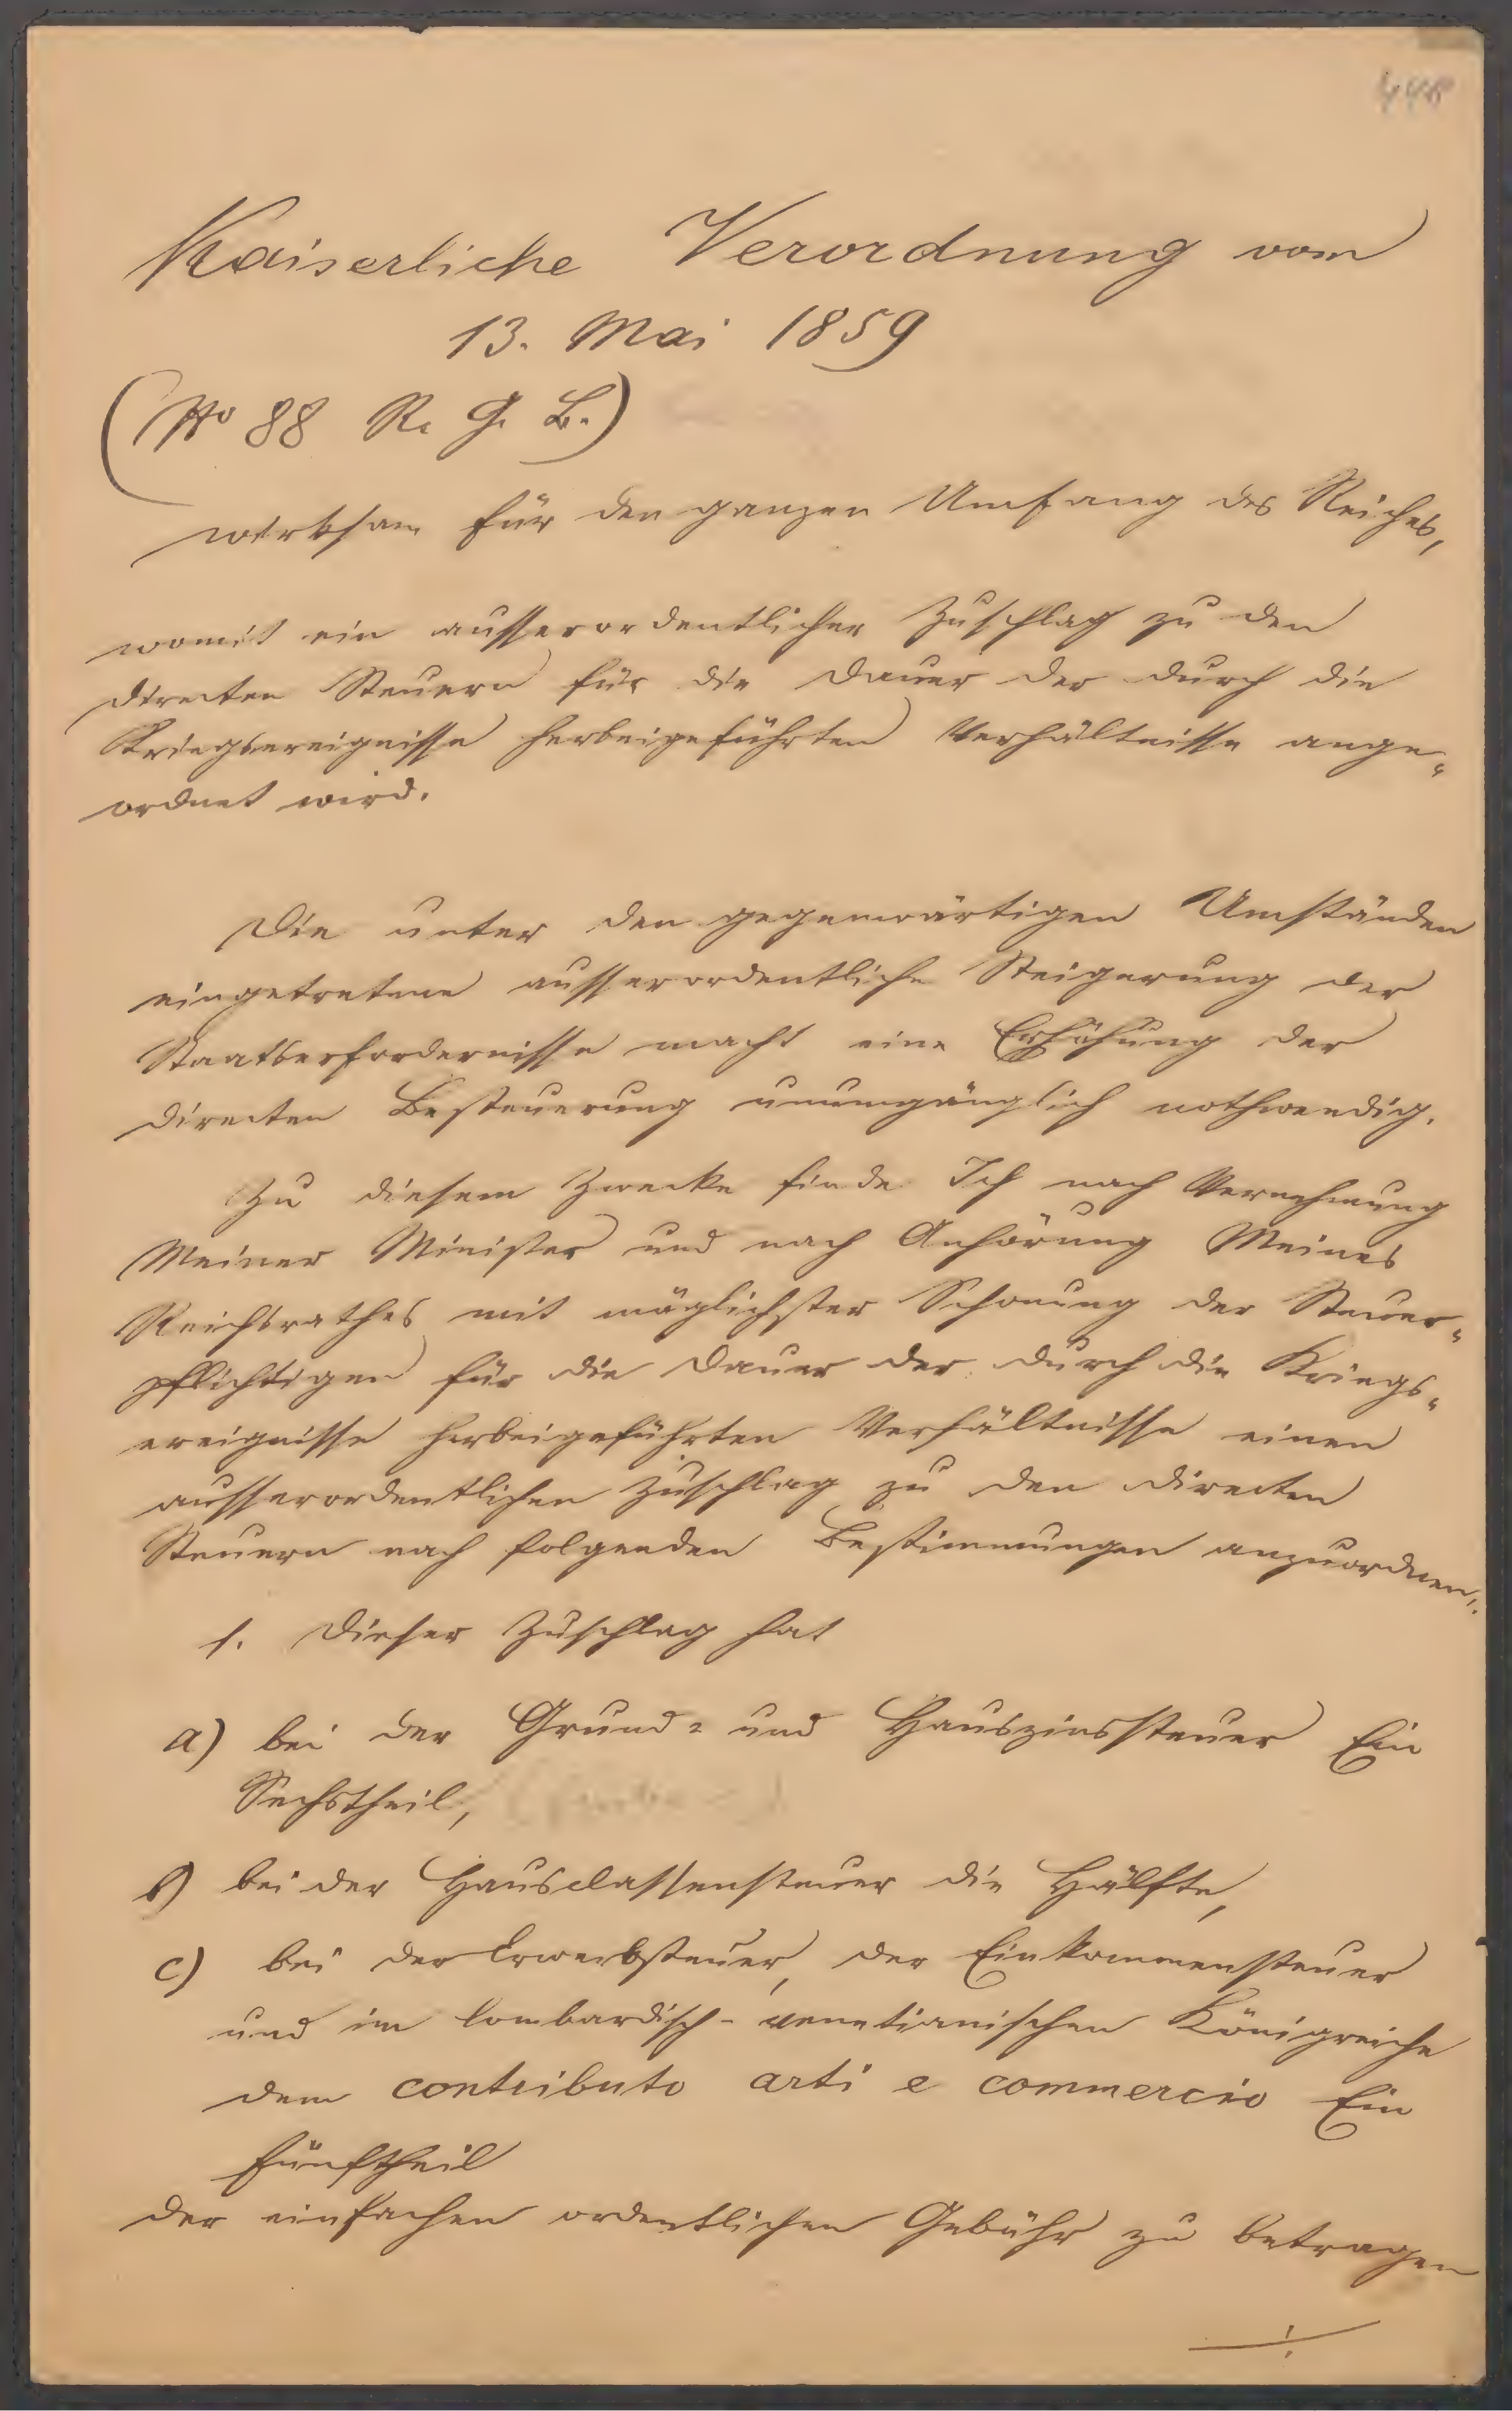 Kaiserliche Verordnung vom
13. Mai 1859
(No 88 R. G. B.)
wirksam für den ganzen Umfang des Reiches,
womit ein ausserordentlicher Zuschlag zu den
directen Steuern für die Dauer der durch die
Kriegsereignisse herbeigeführten Verhältnisse ange-
ordnet wird.
Die unter den gegenwärtigen Umständen
eingetretene ausserordentliche Steigerung der
Staatserfordernisse macht eine Erhöhung der
directen Besteuerung unumgänglich nothwendig.
Zu diesem Zwecke finde Ich nach Vernehmung
Meiner Minister und nach Anhörung Meines
Reichsrathes mit möglichster Schonung der Steuer-
pflichtigen für die Dauer der durch die Kriegs-
ereignisse herbeigeführten Verhältnisse einen
ausserordentlichen Zuschlag zu den directen
Steuern nach folgenden Bestimmungen anzuordnen:
1. Dieser Zuschlag hat
a) bei der Grund- und Hauszinssteuer Ein
Sechstheil,
b) bei der Hausclassensteuer die Hälfte,
c) bei der Erwerbsteuer, der Einkommensteuer
und im lombardisch-venetianischen Königreiche
dem contributo arti e commercio Ein
Fünftheil
der einfachen ordentlichen Gebühr zu betragen